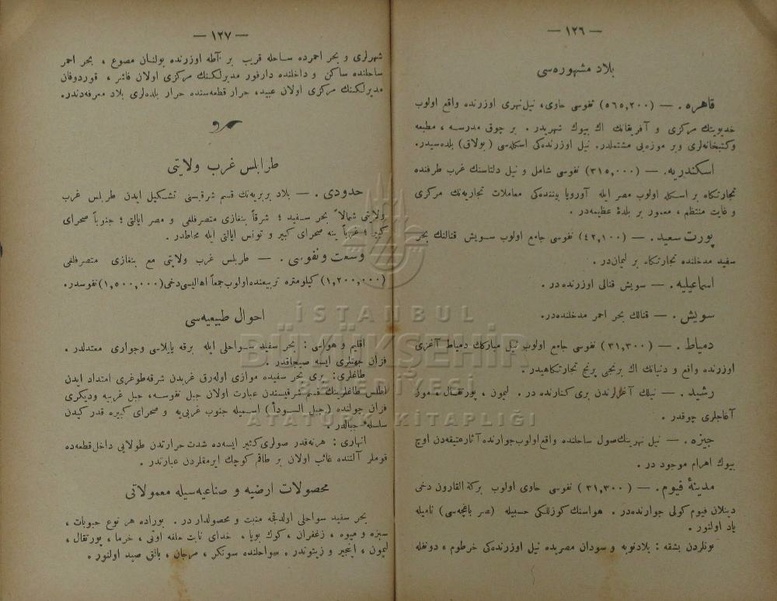 — ١٢٦ —
بلاد مشهوره‌سی
قاهره . — (٥٦٥,٢٠٠) نفوسی حاوی ، نیل نهری اوزرنده واقع اولوب
خدیویتك مرکزی و آفریقانك اك بیوك شهریدر . بر چوق مدرسه ، مطبعه
وکتبخانه‌لری وبر موزه‌یی مشتملدر . نیل اوزرنده‌کی اسکله‌سی (بولاق) بلده‌سیدر .
اسکندریه . — (٣١٥,٠٠٠) نفوسی شامل و نیل دلتاسنك غرب طرفنده
تجارتکاه بر اسکله اولوب مصر ایله آوروپا بیننده‌کی معاملات تجاریه‌نك مرکزی
و غایت منتظم ، معمور بر بلدۀ عظیمه‌در .
پورت سعید . — (٤٢,١٠٠) نفوسی جامع اولوب سویش قنالنك بحر
سفید مدخلنده تجارتکاه بر لیماندر .
اسماعیلیه . — سویش قنالی اوزرنده در .
سویش . — قنالك بحر احمر مدخلنده‌در .
دمیاط . — (٣١,٣٠٠) نفوسی جامع اولوب نیل مبارکك دمیاط آغزی
اوزرنده واقع و دنیانك اك برنجی پرنج تجارتکاهیدر .
رشید . — نیلك آغزلرندن بری کنارنده در . لیمون ، پورتقال ، موز
آغاجلری چوقدر .
جیزه . — نیل نهرینك صول ساحلنده واقع اولوب جوارنده آثار عتیقه‌دن اوچ
بیوك اهرام موجود در .
مدینۀ فیوم . — (٣١,٣٠٠) نفوسی حاوی اولوب برکة القارون دخی
دینلان فیوم کولی جوارنده‌در . هواسنك کوزللکی حسبیله (مصر باغچه‌سی) نامیله
یاد اولنور .
بونلردن بشقه : بلاد نوبه و سودان مصریده نیل اوزرنده‌کی خرطوم ، دونغله
— ١٢٧ —
شهرلری و بحر احمرده ساحله قریب بر آطه اوزرنده بولنان مصوع ، بحر احمر
ساحلنده ساکن و داخلنده دارفور مدیرلکنك مرکزی اولان فاشر ، قوردوفان
مدیرلکنك مرکزی اولان عبید ، حرار قطعه‌سنده حرار بلده‌لری بلاد معروفه‌دندر .
طرابلس غرب ولایتی
حدودی . — بلاد بربریه‌نك قسم شرقیسنی تشکیل ایدن طرابلس غرب
ولایتی شمالاً بحر سفید ؛ شرقاً بنغازی متصرفلغی و مصر ایالتی ؛ جنوباً صحرای
کبیر ؛ غرباً ینه صحرای کبیر و تونس ایالتی ایله محاطدر .
وسعت ونفوسی . — طرابلس غرب ولایتی مع بنغازی متصرفلغی
(١,٢٠٠,٠٠٠) کیلومتره تربیعنده اولوب جمعاً اهالیسی دخی (١,٥٠٠,٠٠٠) نفوسدر .
احوال طبیعیه‌سی
اقلیم و هواسی : بحر سفید سواحلی ایله برقه یایلاسی وجواری معتدلدر .
فزان جهتلری ایسه صیجاقدر .
طاغلری : بری بحر سفیده موازی اوله‌رق غربدن شرقه طوغری امتداد ایدن
اطلس طاغلرینك قسم شرقیسندن عبارت اولان جبل نفوسه ، جبل غریبه ودیکری
فزان چولنده (جبل السودا) اسمیله جنوب غربی‌یه و صحرای کبیره قدر کیدن
سلسلۀ جبالدر .
انهاری : هرنه‌قدر صولری کثیر ایسه‌ده شدت حرارتدن طولایی داخل قطعه‌ده
قوملر آلتنده غائب اولان بر طاقم کوچك ایرمقلردن عبارتدر .
محصولات ارضیه و صناعیه‌سیله معمولاتی
بحر سفید سواحلی اولدقجه منبت و محصولدار در . بوراده هر نوع حبوبات ،
سبزه و میوه ، زغفران ، کوك بویا ، خدای نابت حلفه اوتی ، خرما ، پورتقال ،
لیمون ، اینجیر و زیتوندر ، سواحلنده سونکر ، مرجان ، بالق صید اولنور .
İSTANBUL
BÜYÜKŞEHİR
BELEDİYESİ
ATATÜRK KİTAPLIĞI